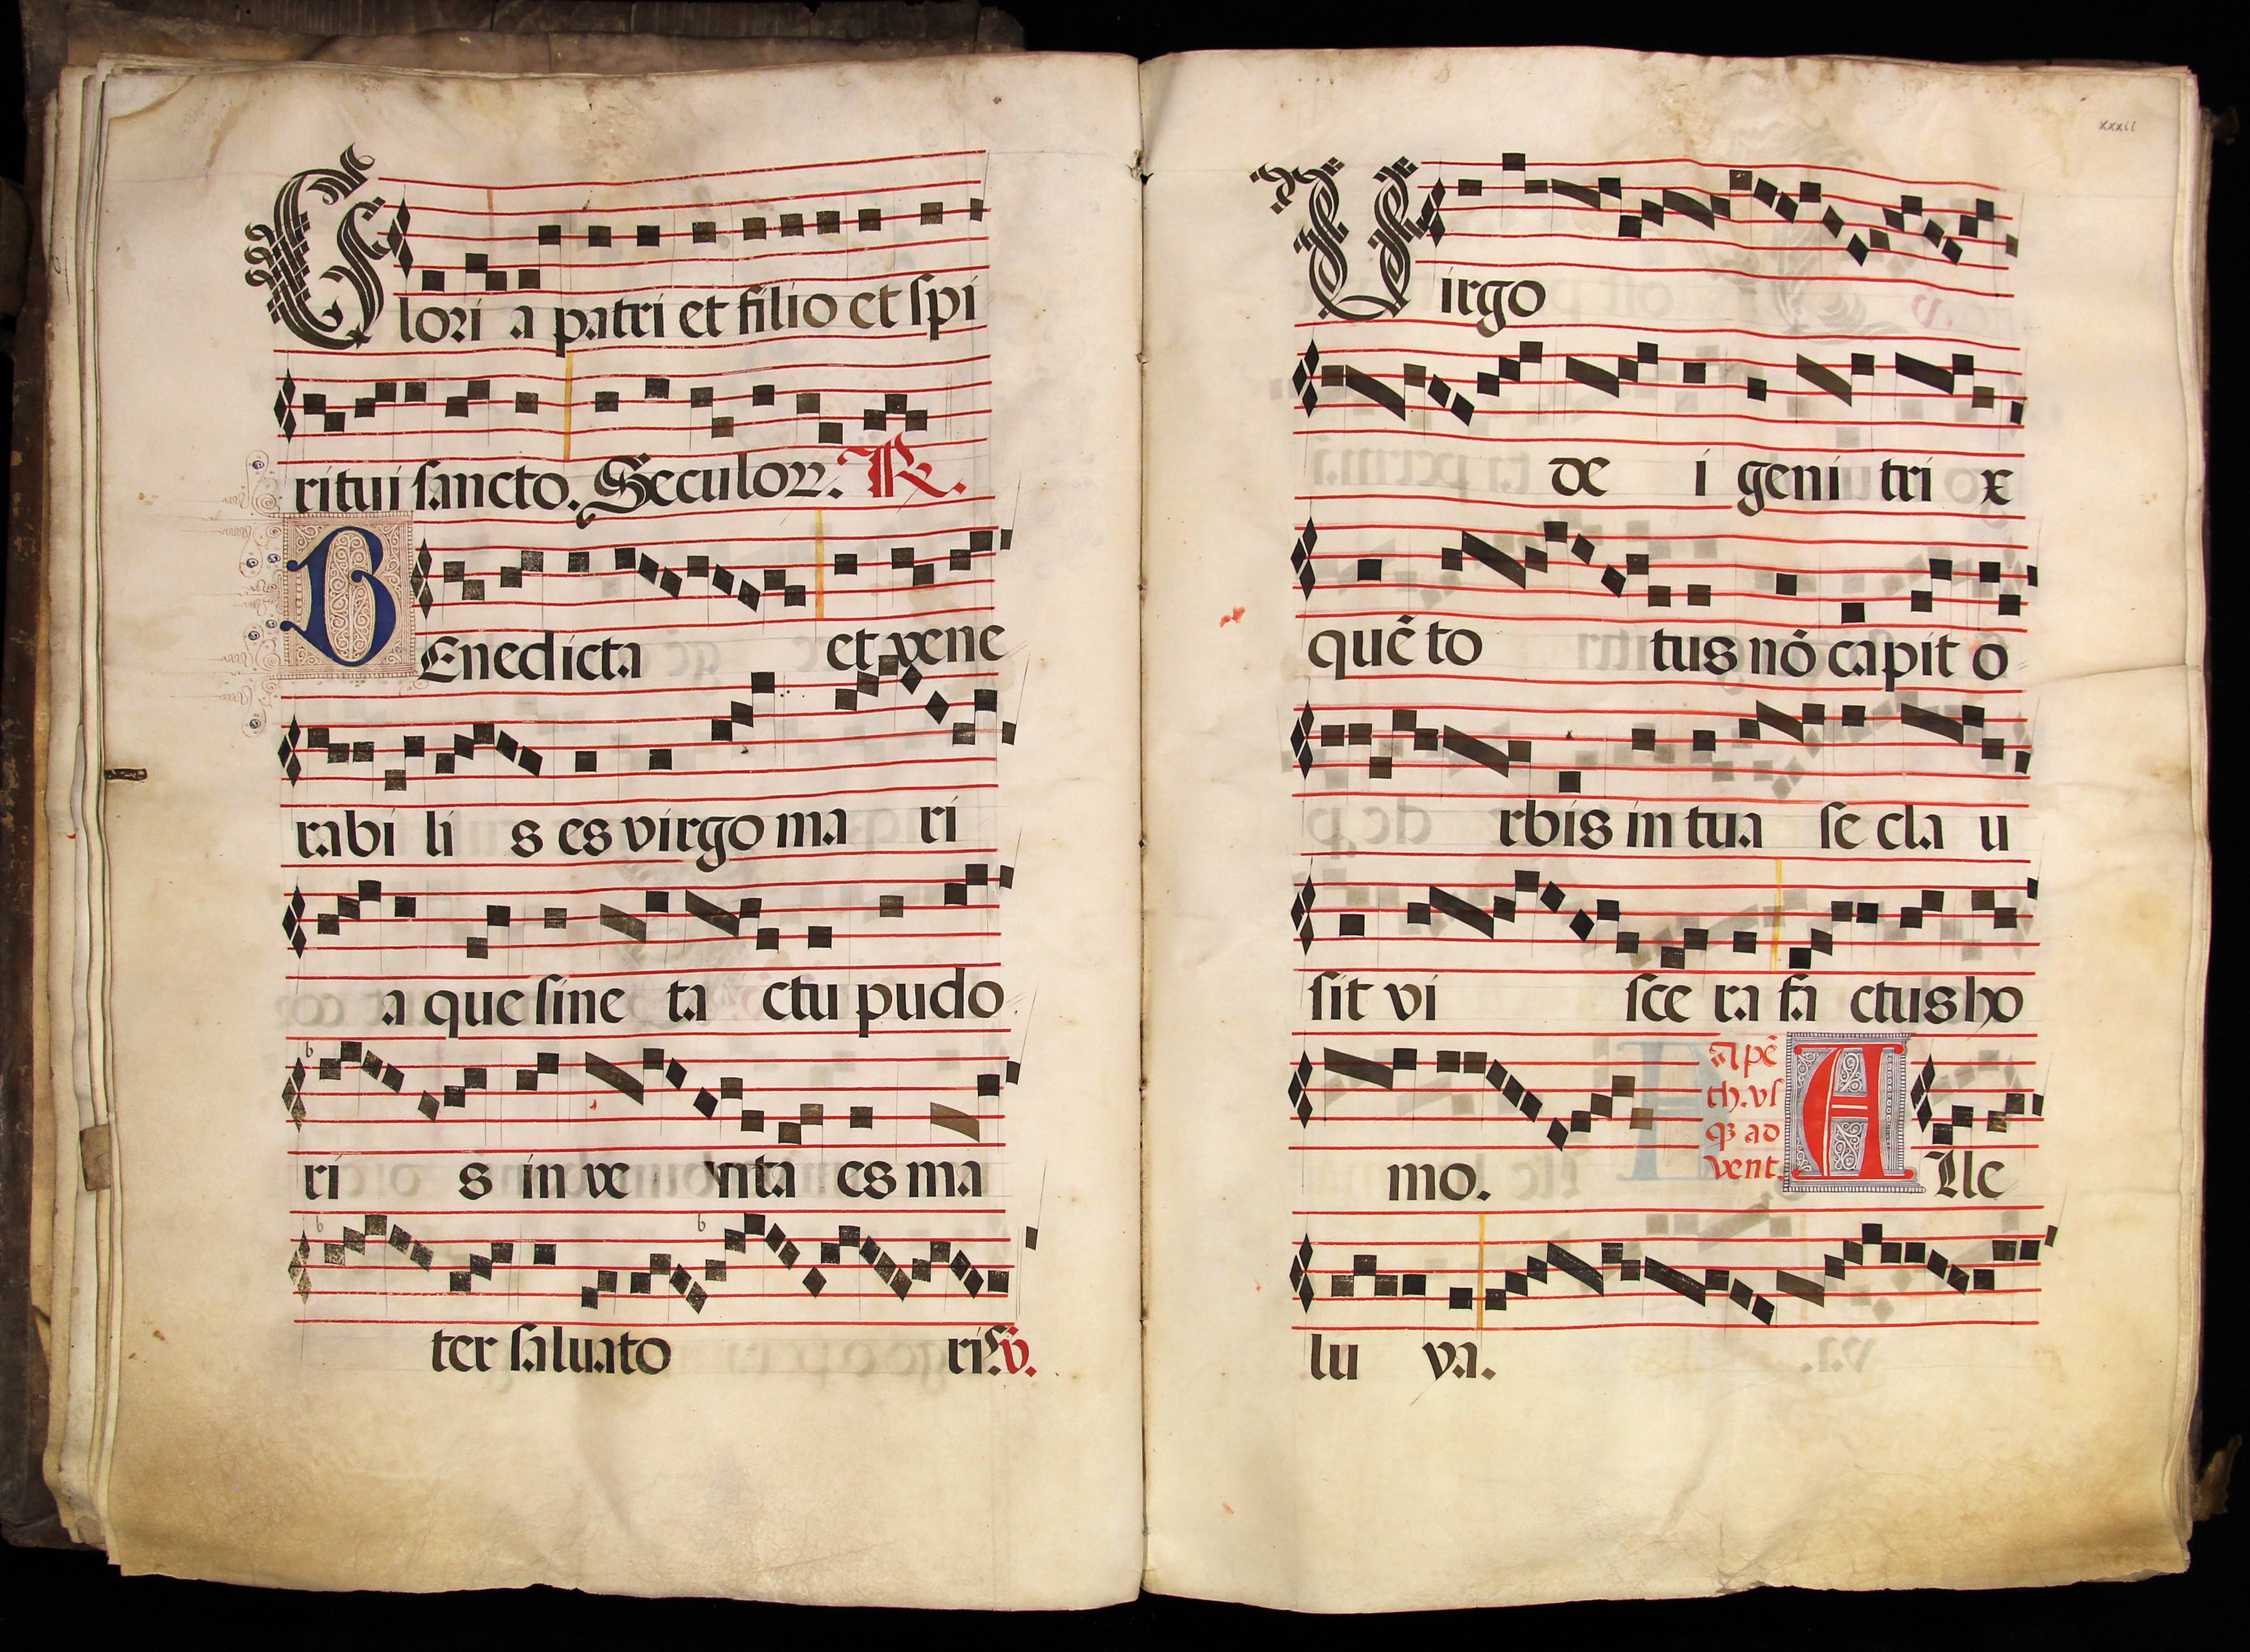 Glori a patri et filio et spi
ritui sancto. Seculoꝝ. R.
BEnedicta et vene
rabi li s es virgo ma ri
a que sine ta ctu pudo
ri s in ve nta es ma
ter saluato ris. v.
xxxii
Virgo
de i geni tri x
quē to tus nō capit o
rbis in tua se cla u
sit vi sce ra fa ctus ho
mo.
A pē
th. vs
qꝫ ad
vent.
Alle
lu ya.